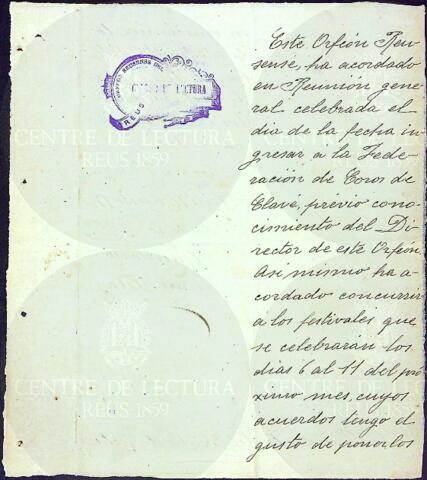 Este Orfeón Reu-
sense, ha acordado
en Reunión gene-
ral celebrada el
dia de la fecha in-
gresar a la Fede-
ración de Coros de
Clavé, previo cono-
cimiento del Di-
rector de este Orfeón.
Asi mismo ha a-
cordado concurrir
a los festivales que
se celebrarán los
dias 6 al 11 del pró-
ximo mes, cuyos
acuerdos tengo el
gusto de ponerlos
LECTURA
REUS
CENTRE DE LECTURA
REUS 1859
CENTRE DE LECTURA
REUS 1859